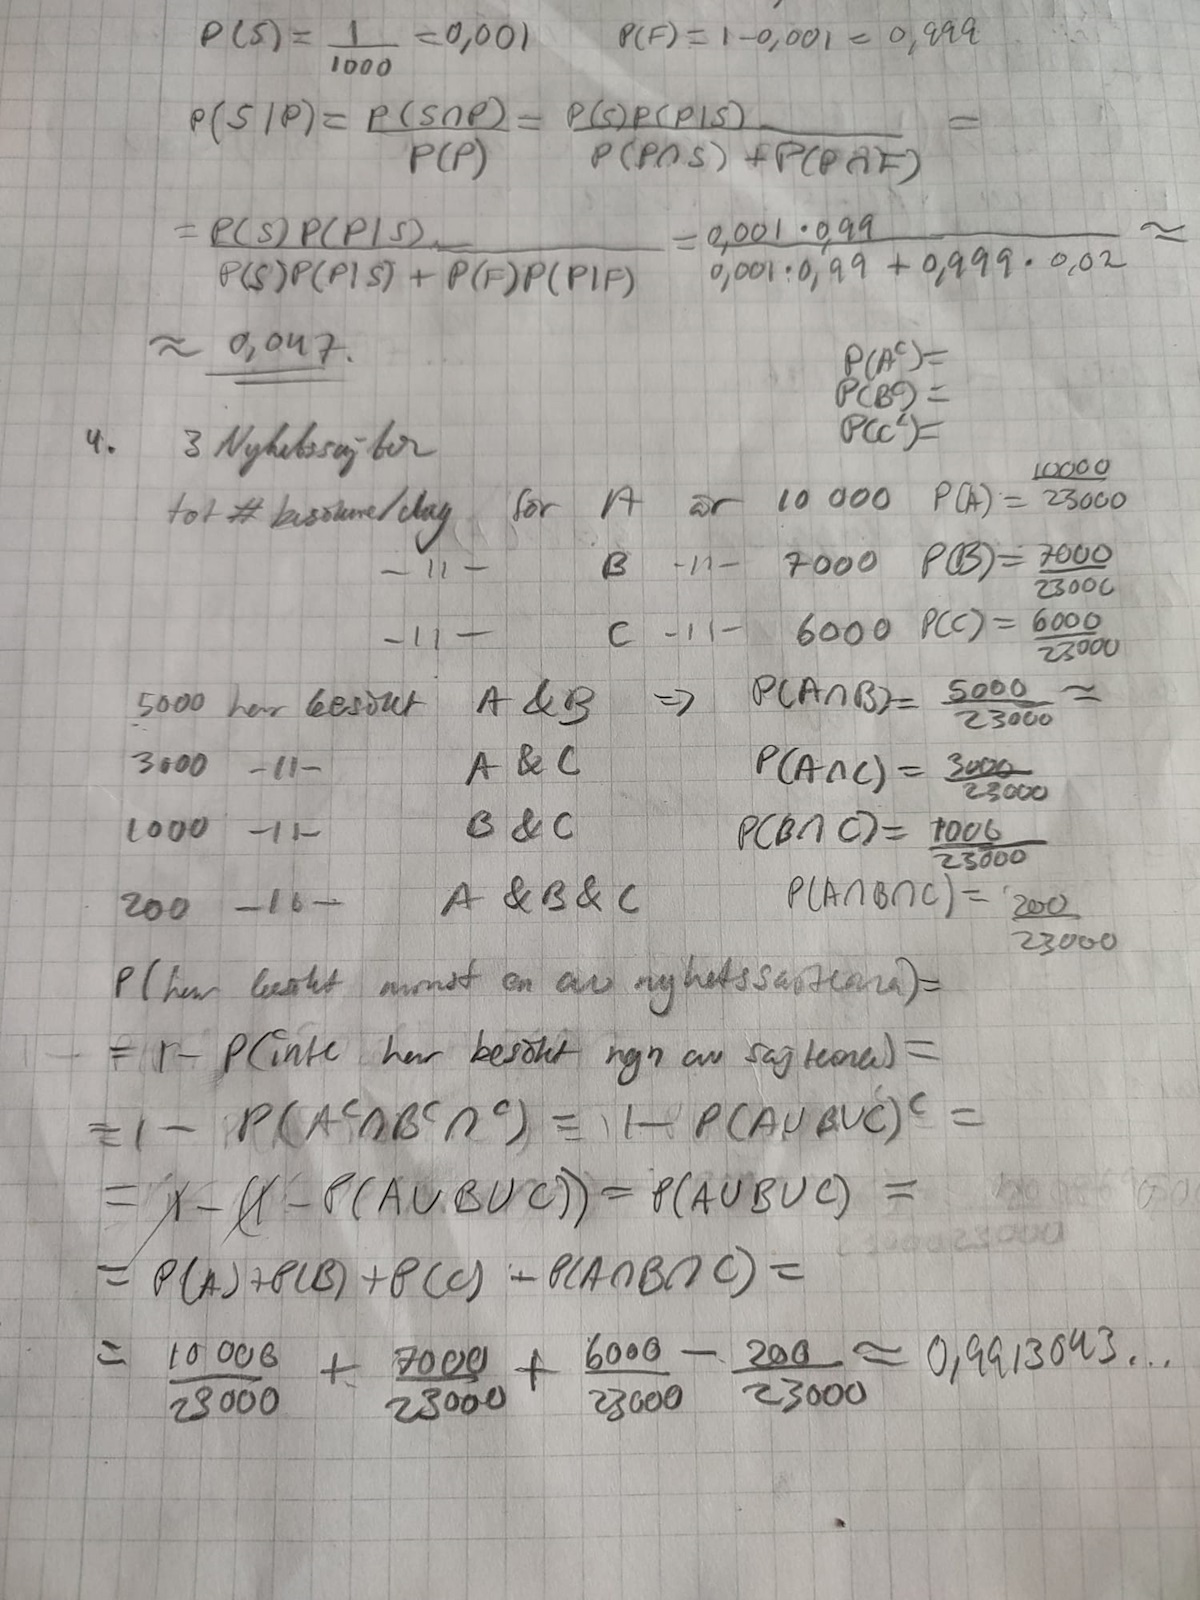 P(S) = 1/1000 = 0,001 P(F) = 1-0,001 = 0,999
P(S|P) = P(S∩P)/P(P) = P(S)P(P|S)/(P(P∩S) + P(P∩F)) =
= P(S)P(P|S)/(P(S)P(P|S) + P(F)P(P|F)) = 0,001·0,99/(0,001·0,99 + 0,999·0,02) ≈
≈ 0,047.
P(Aᶜ)=
P(Bᶜ)=
P(Cᶜ)=
4. 3 Nyhetssajter
tot # besökare/dag för A är 10 000 P(A) = 10000/23000
-11- B -11- 7000 P(B) = 7000/23000
-11- C -11- 6000 P(C) = 6000/23000
5000 har besökt A & B => P(A∩B) = 5000/23000 ≈
3000 -11- A & C P(A∩C) = 3000/23000
1000 -11- B & C P(B∩C) = 1000/23000
200 -11- A & B & C P(A∩B∩C) = 200/23000
P(har besökt minst en av nyhetssajterna) =
= 1 - P(inte har besökt ngn av sajterna) =
= 1 - P(Aᶜ∩Bᶜ∩ᶜ) = 1 - P(A∪B∪C)ᶜ =
= 1 - (1 - P(A∪B∪C)) = P(A∪B∪C) =
= P(A)+P(B)+P(C) - P(A∩B∩C) =
= 10 000/23000 + 7000/23000 + 6000/23000 - 200/23000 ≈ 0,9913043...